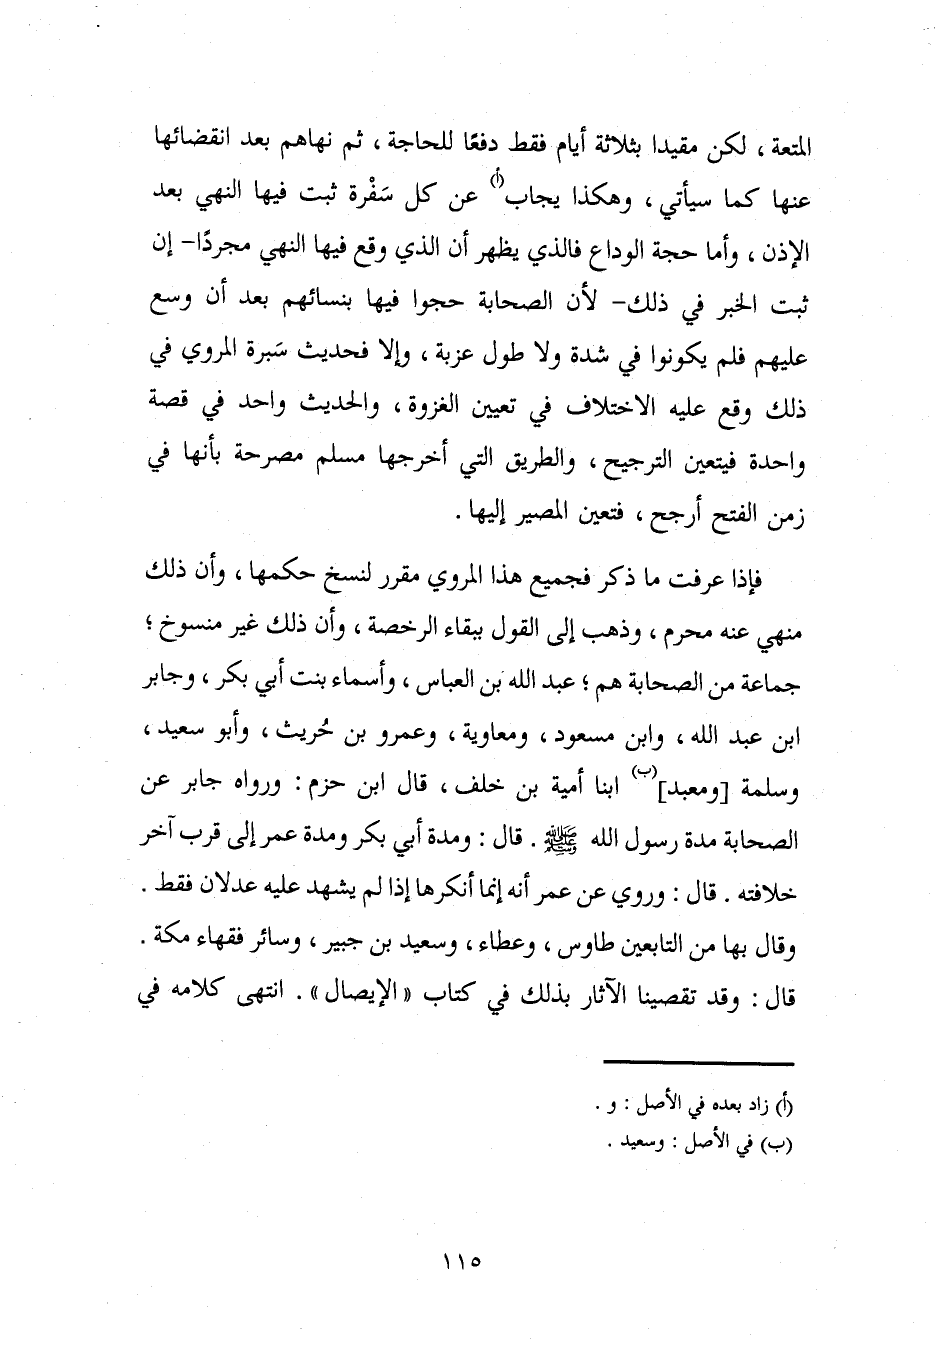 المتعة ، لكن مقيدا بثلاثة أيام فقط دفعًا للحاجة ، ثم نهاهم بعد انقضائها
عنها كما سيأتي ، وهكذا يجاب(أ) عن كل سَفْرة ثبت فيها النهي بعد
الإذن ، وأما حجة الوداع فالذي يظهر أن الذي وقع فيها النهي مجردًا- إن
ثبت الخبر في ذلك- لأن الصحابة حجوا فيها بنسائهم بعد أن وسع
عليهم فلم يكونوا في شدة ولا طول عزبة ، وإلا فحديث سَبرة المروي في
ذلك وقع عليه الاختلاف في تعيين الغزوة ، والحديث واحد في قصة
واحدة فيتعين الترجيح ، والطريق التي أخرجها مسلم مصرحة بأنها في
زمن الفتح أرجح ، فتعين المصير إليها .
فإذا عرفت ما ذكر فجميع هذا المروي مقرر لنسخ حكمها ، وأن ذلك
منهي عنه محرم ، وذهب إلى القول ببقاء الرخصة ، وأن ذلك غير منسوخ ؛
جماعة من الصحابة هم ؛ عبد الله بن العباس ، وأسماء بنت أبي بكر ، وجابر
ابن عبد الله ، وابن مسعود ، ومعاوية ، وعمرو بن حُريث ، وأبو سعيد ،
وسلمة [ومعبد](ب) ابنا أمية بن خلف ، قال ابن حزم : ورواه جابر عن
الصحابة مدة رسول الله ﷺ . قال : ومدة أبي بكر ومدة عمر إلى قرب آخر
خلافته . قال : وروي عن عمر أنه إنما أنكرها إذا لم يشهد عليه عدلان فقط .
وقال بها من التابعين طاوس ، وعطاء ، وسعيد بن جبير ، وسائر فقهاء مكة .
قال : وقد تقصينا الآثار بذلك في كتاب «الإيصال» . انتهى كلامه في
(أ) زاد بعده في الأصل : و .
(ب) في الأصل : وسعيد .
١١٥